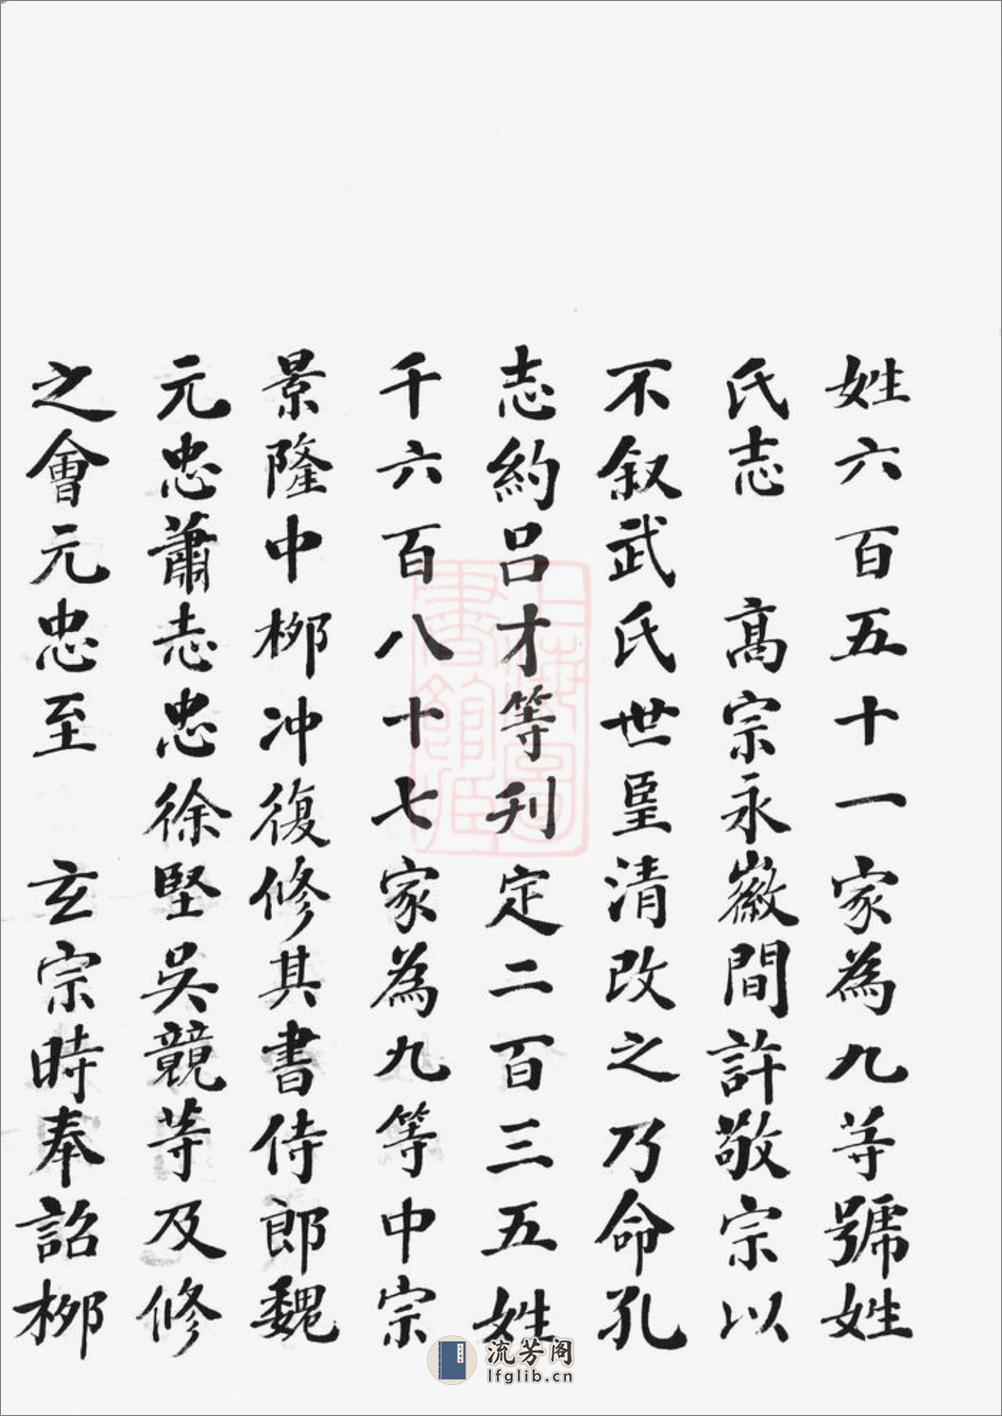 姓六百五十一家為九等號姓
氏志　髙宗永徽間許敬宗以
不叙武氏世里清改之乃命孔
志約吕才等刋定二百三五姓
千六百八十七家為九等中宗
景隆中栁冲復修其書侍郎魏
元忠蕭志忠徐堅吳競等及修
之㑹元忠至　玄宗時奉詔栁
上海圖
書館藏
流芳阁
lfglib.cn